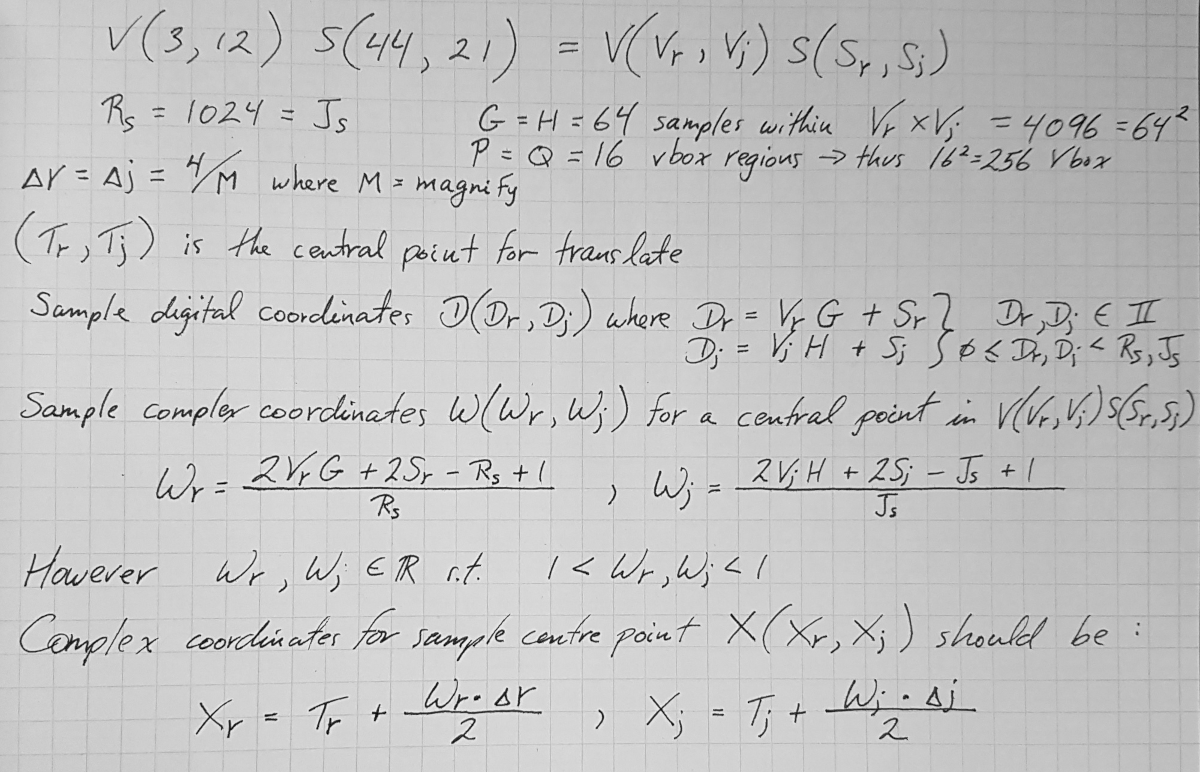 V(3,12) S(44,21) = V(Vr, Vj) S(Sr, Sj)
Rs = 1024 = Js
G = H = 64 samples within Vr × Vj = 4096 = 64²
P = Q = 16 vbox regions → thus 16² = 256 Vbox
Δr = Δj = 4/M where M = magnify
(Tr, Tj) is the central point for translate
Sample digital coordinates D(Dr, Dj) where Dr = Vr G + Sr } Dr, Dj ∈ II
Dj = Vj H + Sj } ø ≤ Dr, Dj < Rs, Js
Sample complex coordinates W(Wr, Wj) for a central point in V(Vr, Vj) S(Sr, Sj)
Wr = (2Vr G + 2Sr - Rs + 1) / Rs , Wj = (2Vj H + 2Sj - Js + 1) / Js
However Wr, Wj ∈ ℝ s.t. 1 < Wr, Wj < 1
Complex coordinates for sample centre point X(Xr, Xj) should be :
Xr = Tr + (Wr · Δr) / 2 , Xj = Tj + (Wj · Δj) / 2